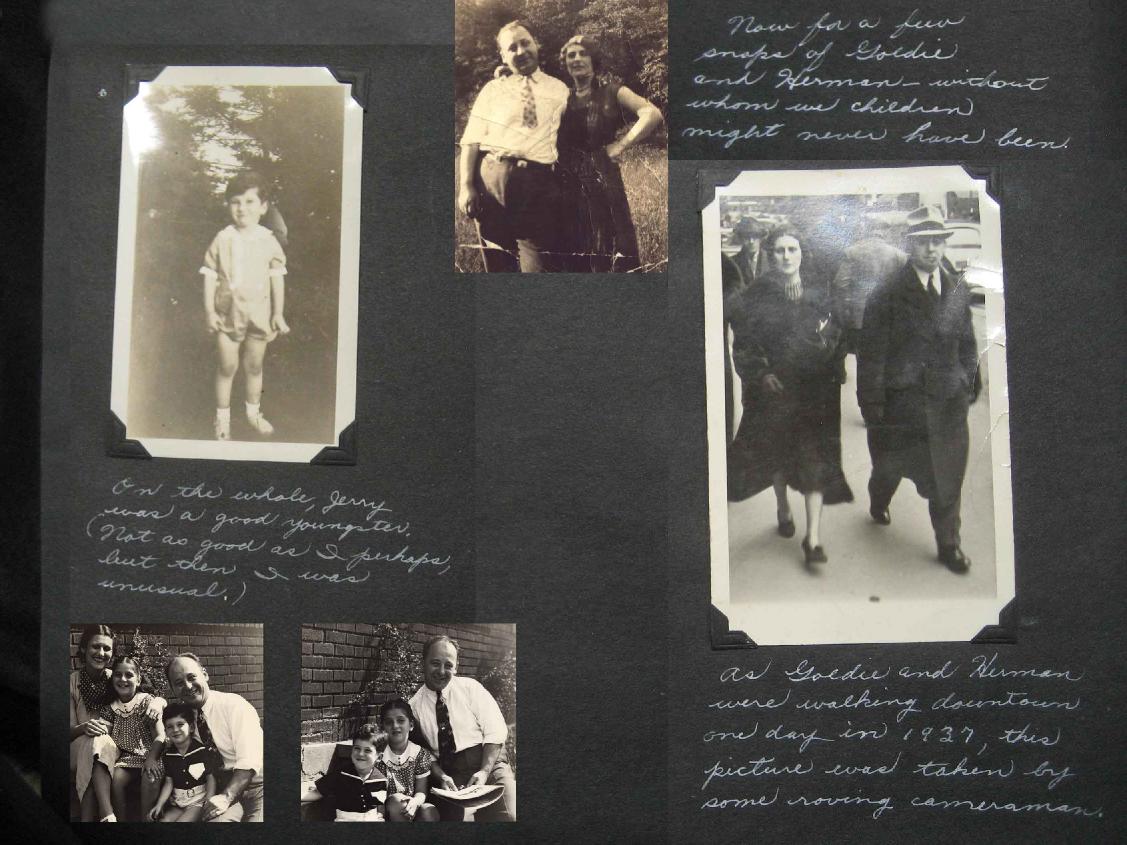 Now for a few
snaps of Goldie
and Herman — without
whom we children
might never have been.
On the whole, Jerry
was a good youngster.
(Not as good as I perhaps,
but then I was
unusual.)
As Goldie and Herman
were walking downtown
one day in 1937, this
picture was taken by
some roving cameraman.